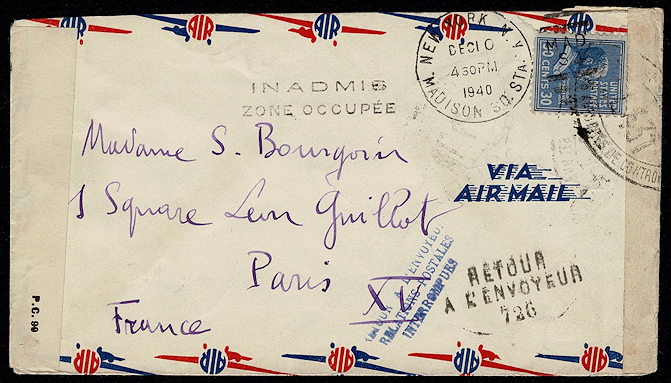 AIR AIR AIR
NEW YORK N.Y.
DEC 10
430PM
1940
MADISON SQ. STA.
UNITED STATES POSTAGE
30 CENTS 30
INADMIS
ZONE OCCUPÉE
Madame S. Bourgoin
VIA
AIR MAIL
1 Square Léon Guillot
Paris XV
RELATIONS POSTALES
INTERROMPUES
RETOUR
A L'ENVOYEUR
726
France
P.C. 90
AIR AIR AIR AIR